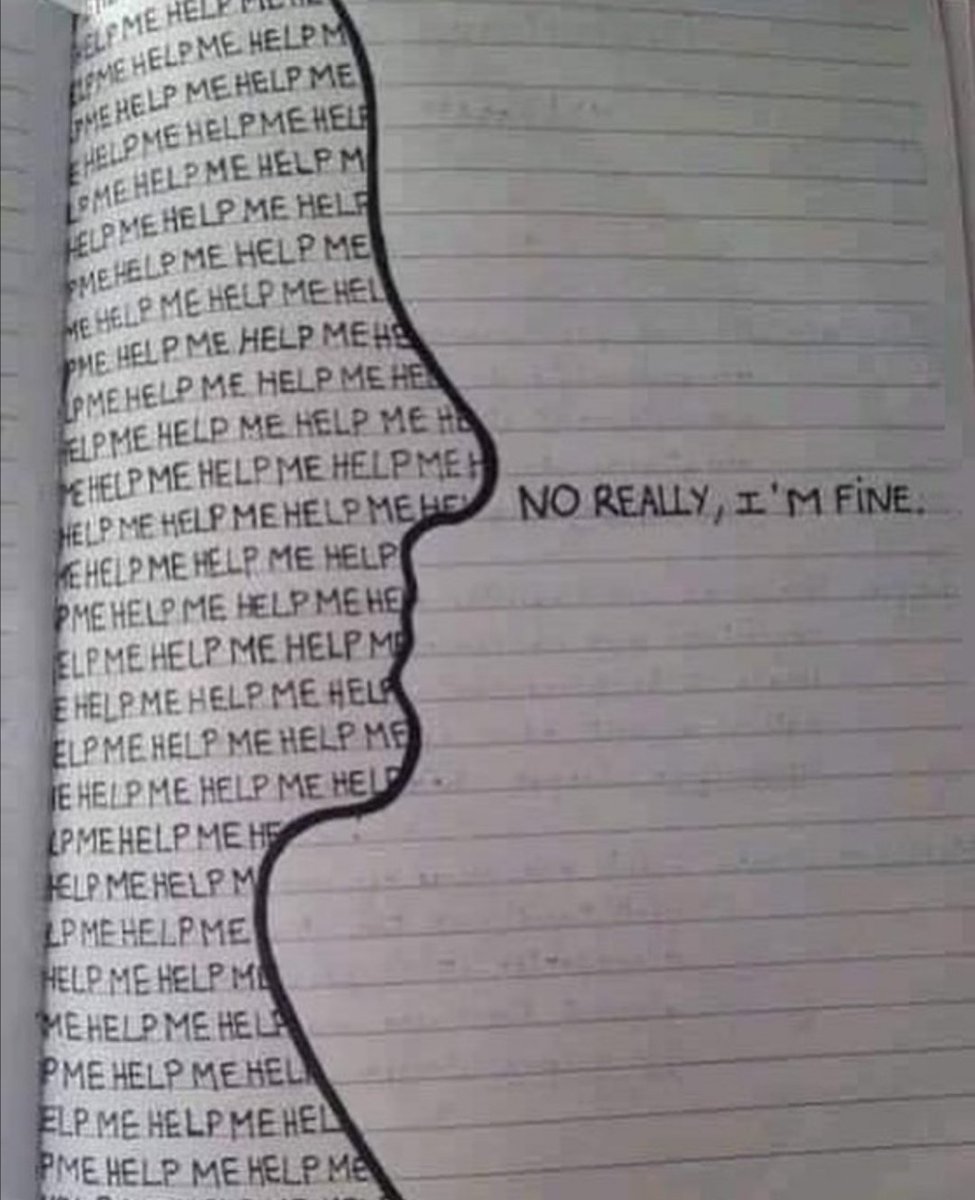 ELP ME HELP
LPME HELP ME HELP M
PME HELP ME HELP ME
E HELP ME HELP ME HELP
LP ME HELP ME HELP M
HELP ME HELP ME HELP
PME HELP ME HELP ME
ME HELP ME HELP ME HEL
PME HELP ME HELP ME HE
LPME HELP ME HELP ME HEL
ELP ME HELP ME HELP ME HE
ME HELP ME HELP ME HELP ME H
HELP ME HELP ME HELP ME HE
NO REALLY, I'M FINE.
ME HELP ME HELP ME HELP
PME HELP ME HELP ME HE
ELP ME HELP ME HELP ME
E HELP ME HELP ME HELP
ELP ME HELP ME HELP ME
E HELP ME HELP ME HELP
LPME HELP ME HE
HELP ME HELP M
LPME HELP ME
HELP ME HELP ME
ME HELP ME HELP
PME HELP ME HEL
ELP ME HELP ME HEL
PME HELP ME HELP ME